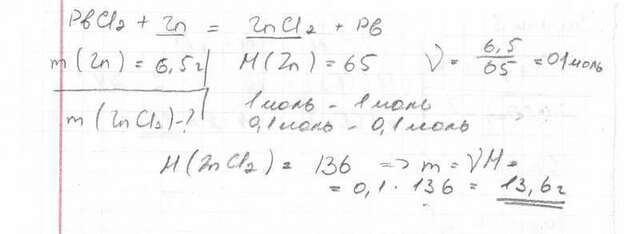 PbCl2 + Zn = ZnCl2 + Pb
m(Zn) = 6,5г M(Zn) = 65 ν = 6,5/65 = 01моль
m(ZnCl2)-? 1моль - 1моль
0,1моль - 0,1моль
M(ZnCl2) = 136 => m = νM =
= 0,1 · 136 = 13,6г